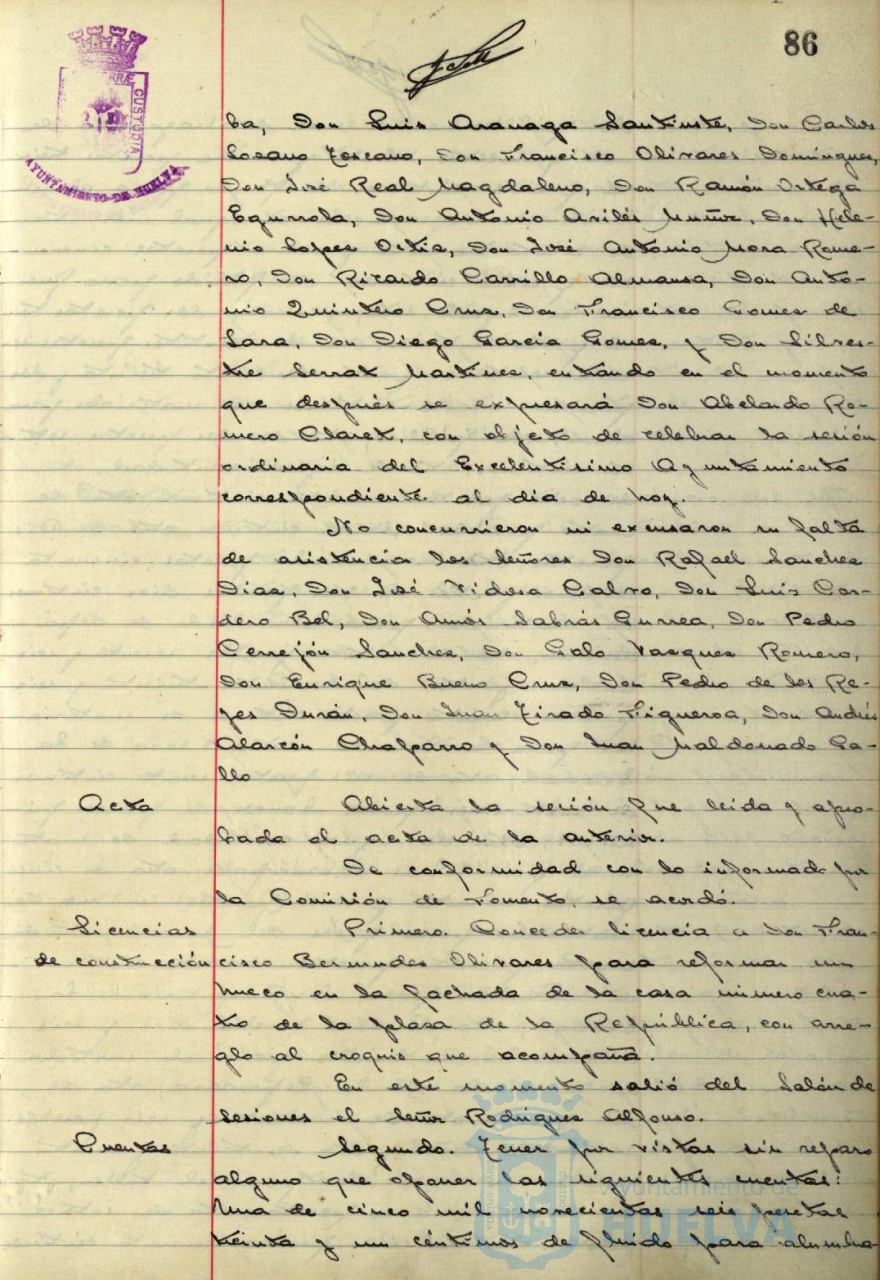 86
RRÆ CUSTODIA
AYUNTAMIENTO DE HUELVA
ba, Don Luis Aranaga Santiuste, Don Carlos
Lozano Toscano, Don Francisco Olivares Domínguez,
Don José Real Magdaleno, Don Ramón Ortega
Egurrola, Don Antonio Avilés Muñoz, Don Hele-
nio Lopez Ortiz, Don José Antonio Mora Rome-
ro, Don Ricardo Carrillo Almansa, Don Anto-
nio Quintero Cruz, Don Francisco Gomez de
Lara, Don Diego García Gomez, y Don Silves-
tre Serrat Martinez, entrando en el momento
que después se expresará Don Abelardo Ro-
mero Claret, con objeto de celebrar la sesión
ordinaria del Excelentísimo Ayuntamiento
correspondiente al día de hoy.
No concurrieron ni excusaron su falta
de asistencia los Señores Don Rafael Sanchez
Díaz, Don José Vidosa Calvo, Don Luis Cor-
dero Bel, Don Amós Sabrás Gurrea, Don Pedro
Cerrejón Sanchez, Don Galo Vazquez Romero,
Don Enrique Bueno Cruz, Don Pedro de los Re-
yes Durán, Don Juan Tirado Figueroa, Don Andrés
Alarcón Chaparro y Don Juan Maldonado Ga-
llo
Acta
Abierta la sesión fue leida y apro-
bada el acta de la anterior.
De conformidad con lo informado por
la Comisión de Fomento, se acordó.
Licencias
de construcción
Primero. Conceder licencia a Don Fran-
cisco Bermudez Olivares para reformar un
hueco en la fachada de la casa número cua-
tro de la plaza de la República, con arre-
glo al croquis que acompaña.
En este momento salió del Salón de
Sesiones el Señor Rodríguez Alfonso.
Cuentas
Segundo. Tener por vistas sin reparo
alguno que oponer las siguientes cuentas:
Una de cinco mil novecientas seis pesetas
treinta y un céntimos de fluido para alumbra-
Ayuntamiento de
HUELVA